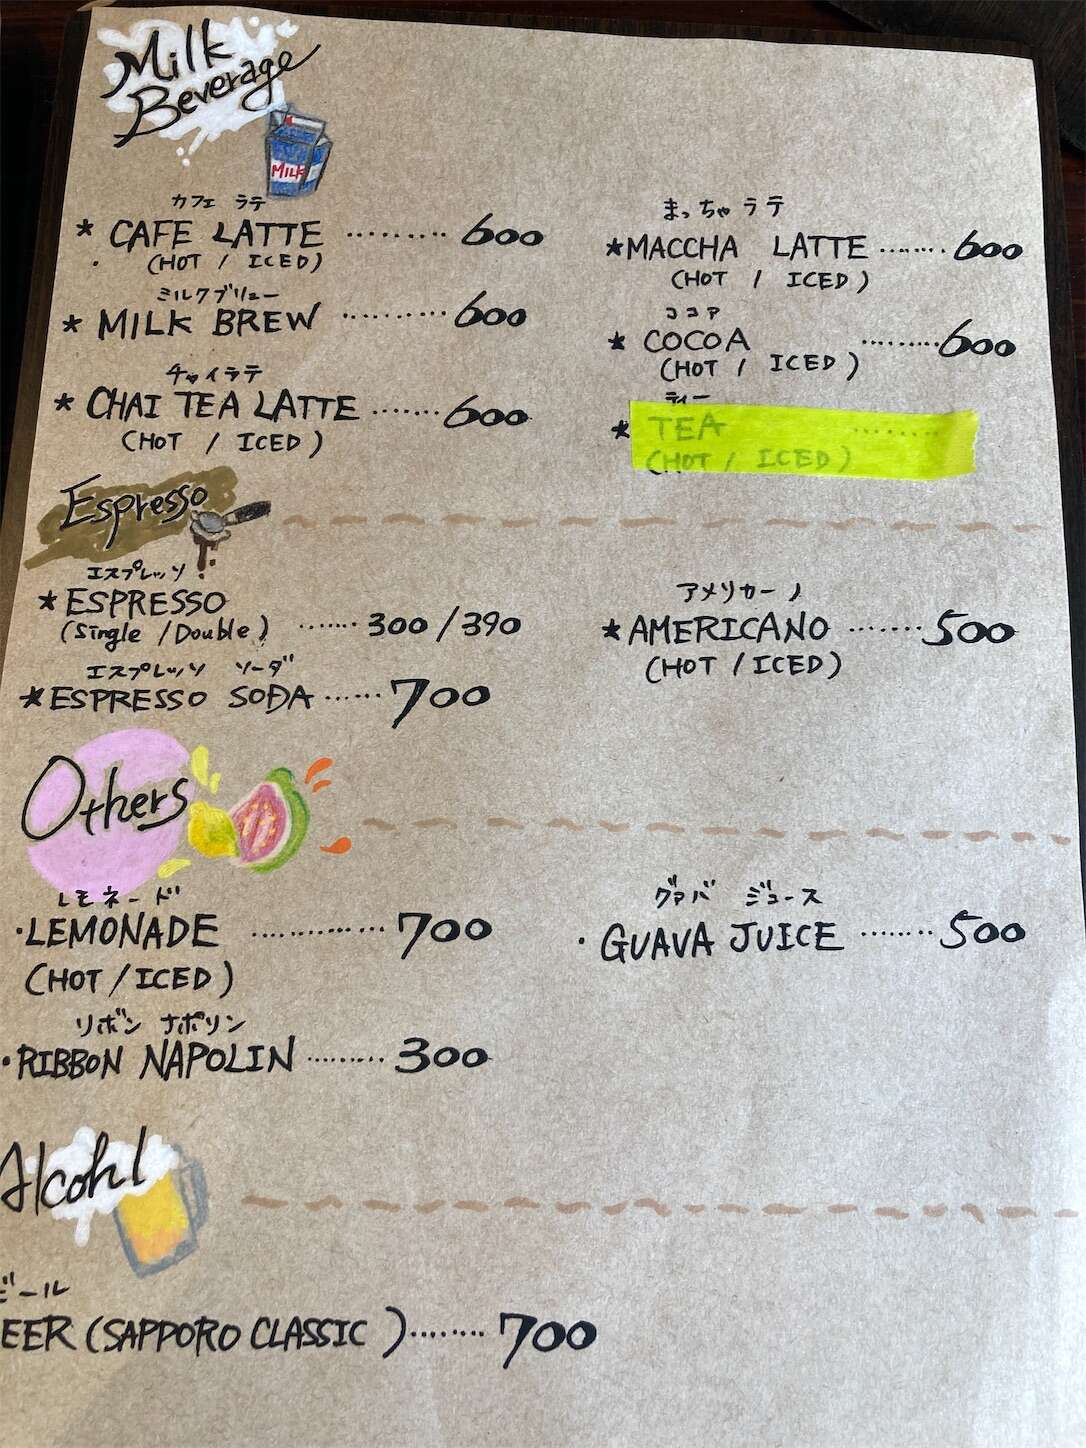 Milk
Beverage
MILK
カフェ ラテ
★ CAFE LATTE ......... 600
(HOT / ICED)
ミルクブリュー
★ MILK BREW ........... 600
チャイラテ
★ CHAI TEA LATTE ....... 600
(HOT / ICED)
まっちゃ ラテ
★MACCHA LATTE ........ 600
(HOT / ICED)
ココア
★ COCOA ......... 600
(HOT / ICED)
ティー
★ TEA .........
(HOT / ICED)
Espresso
エスプレッソ
★ESPRESSO
(Single /Double) ....... 300/390
エスプレッソ ソーダ
★ESPRESSO SODA ...... 700
アメリカーノ
★AMERICANO ....... 500
(HOT / ICED)
Others
レモネード
・LEMONADE ............. 700
(HOT / ICED)
リボン ナポリン
・RIBBON NAPOLIN ......... 300
グァバ ジュース
・GUAVA JUICE ........ 500
Alcohl
ビール
EER (SAPPORO CLASSIC )......... 700